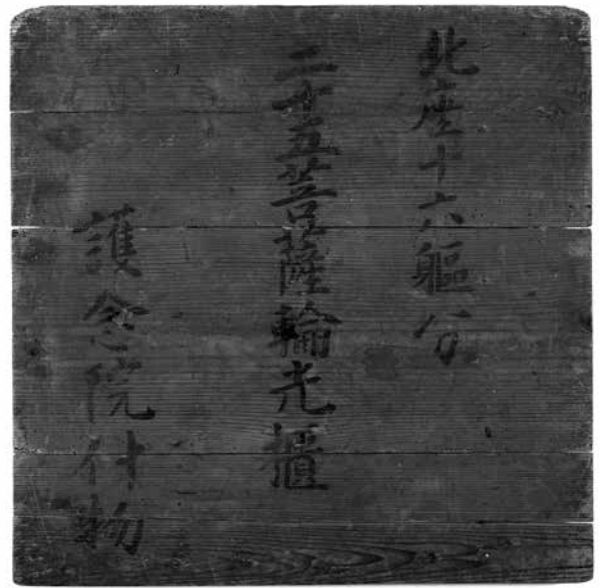 北座十六軀分
二十五菩薩輪光櫃
護念院什物